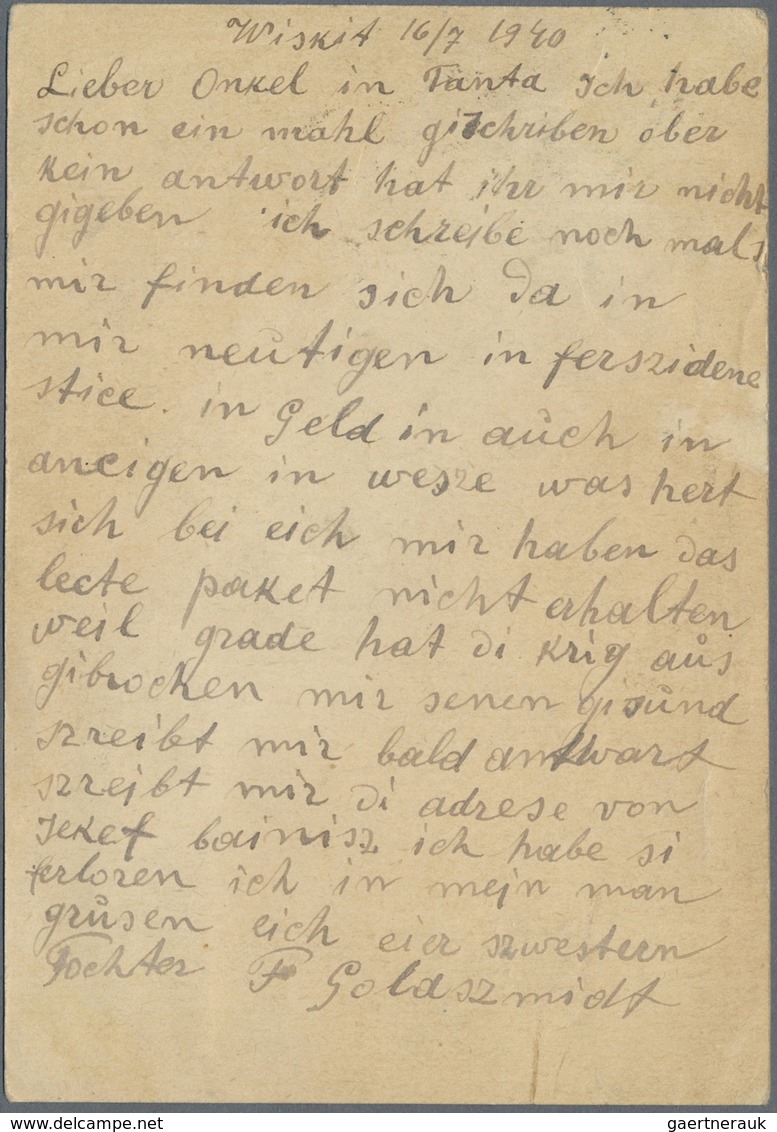 Wiskit 16/7 1940
Lieber Onkel in Tanta Ich habe
schon ein mahl gischriben ober
kein antwort hat ihr mir nicht
gigeben ich schreibe noch mals
mir finden sich da in
mir neutigen in ferszidene
stice. in Geld in auch in
ancigen in wesze was hert
sich bei eich mir haben das
lecte paket nicht erhalten
weil grade hat di krig aus
gibrochen mir senen gisund
szreibt mir bald antwart
szreibt mir di adrese von
Jekef bainisz ich habe si
ferloren ich in mejn man
grusen eich eier szwestern
Tochter F Goldszmidt
www.delcampe.net
gaertnerauk